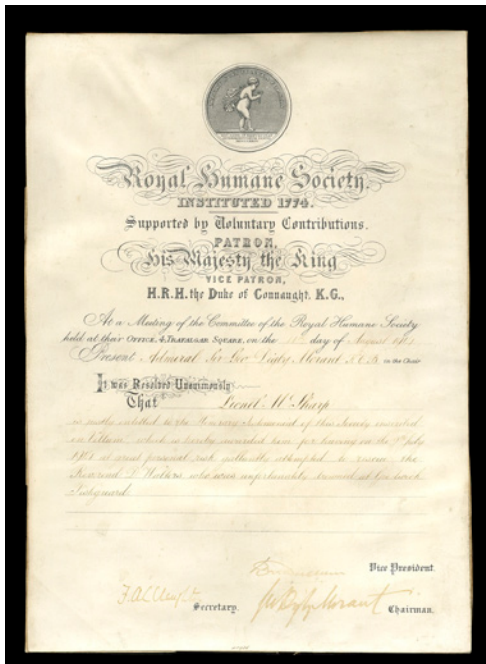 Royal Humane Society.
INSTITUTED 1774.
Supported by Voluntary Contributions.
PATRON,
His Majesty the King
VICE PATRON,
H.R.H. the Duke of Connaught, K.G.,
At a Meeting of the Committee of the Royal Humane Society
held at their OFFICE, 4, TRAFALGAR SQUARE, on the day of August 1901
Present Admiral Sir Geo Digby Morant K.C.B. in the Chair
It was Resolved Unanimously
That Lionel Sharp
is justly entitled to the Honorary Testimonial of this Society inscribed
on Vellum which is hereby awarded him for having on the July
1901 at great personal risk gallantly attempted to rescue the
Reverend Walters who was unfortunately drowned at
Fishguard.
Vice President.
Secretary. Geo Digby Morant Chairman.